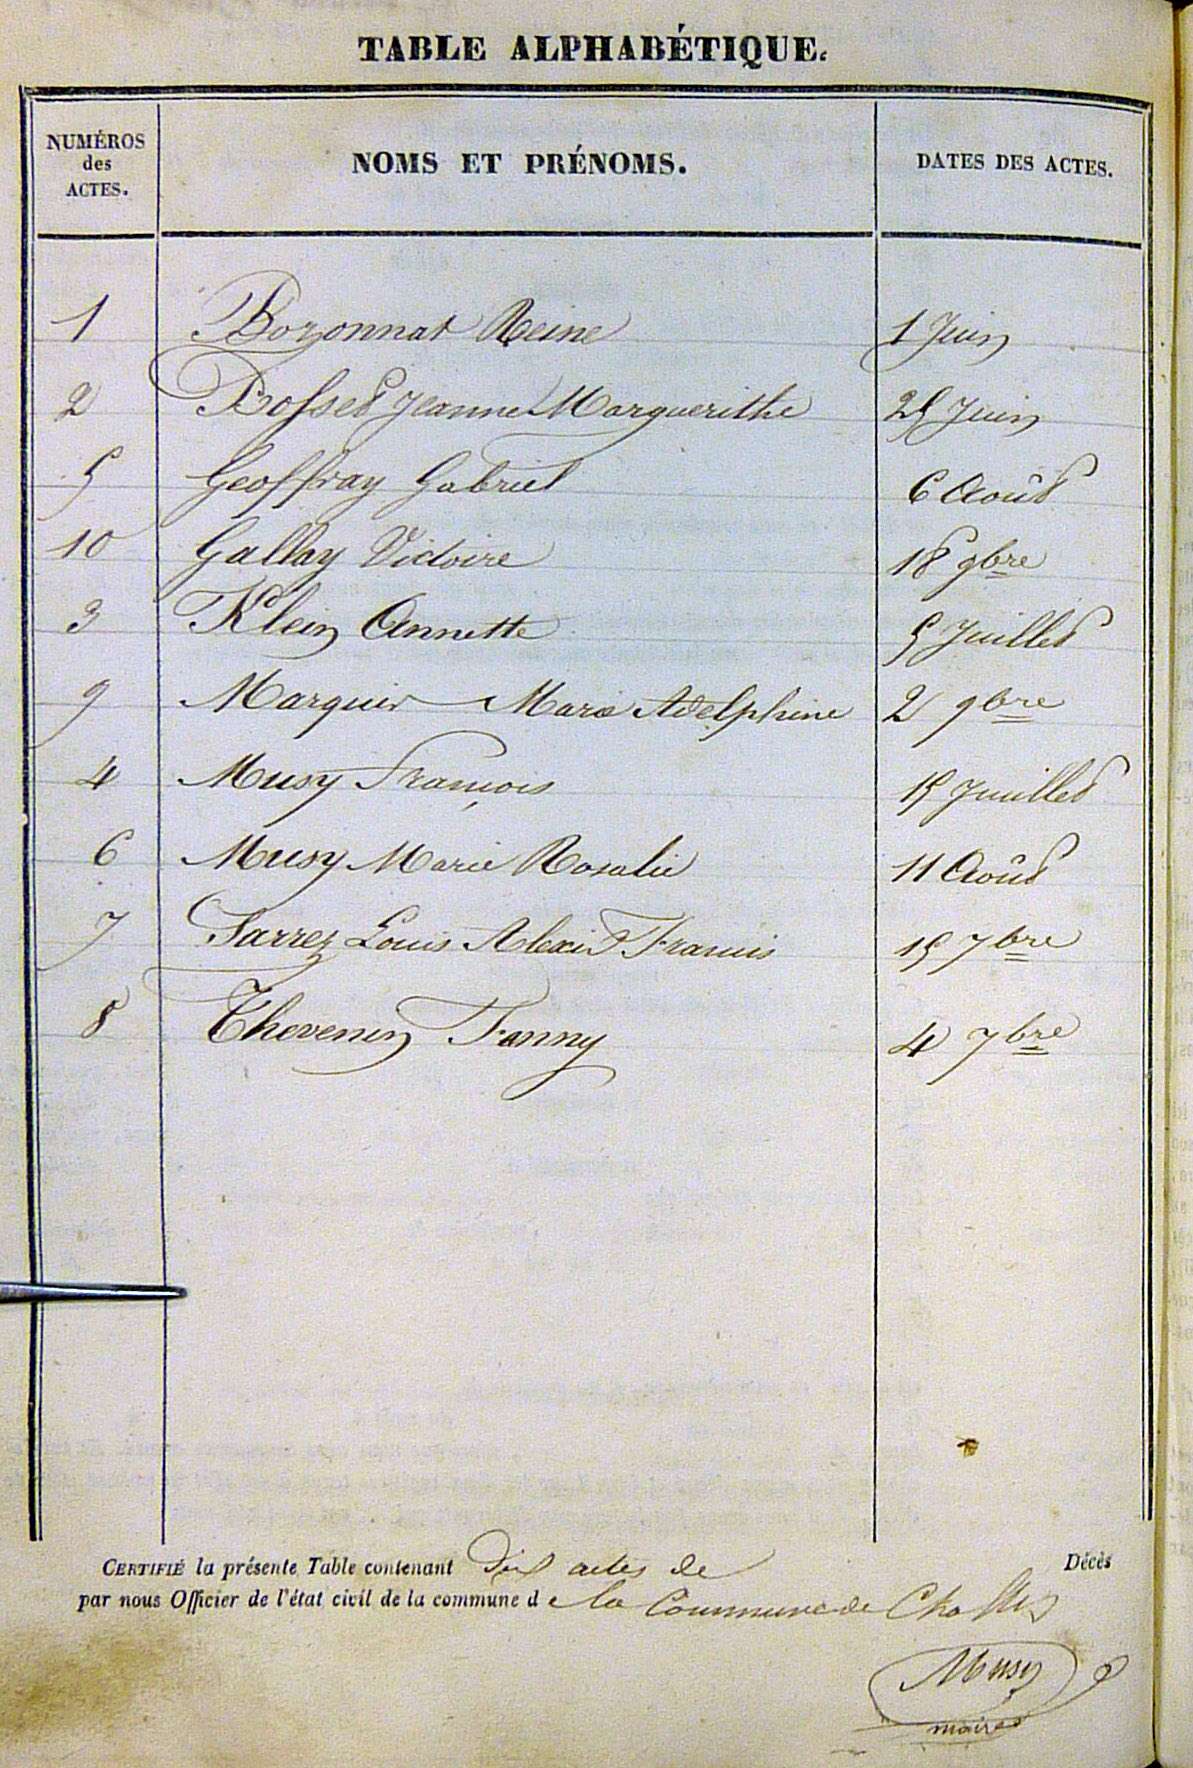 TABLE ALPHABÉTIQUE.
NUMÉROS des ACTES.
NOMS ET PRÉNOMS.
DATES DES ACTES.
1 Bozonnat Reine 1 Juin
2 Bosset Jeanne Marguerithe 25 Juin
5 Geoffray Gabriel 6 Août
10 Gallay Victoire 18 9bre
3 Klein Annette 5 Juillet
9 Marquis Marie Adelphine 2 9bre
4 Musy François 15 Juillet
6 Musy Marie Rosalie 11 Août
7 Sarrez Louis Alexis Francis 15 7bre
8 Thevenin Fanny 4 7bre
CERTIFIÉ la présente Table contenant dix actes de Décès
par nous Officier de l'état civil de la commune d e la Commune de
Musy
maire